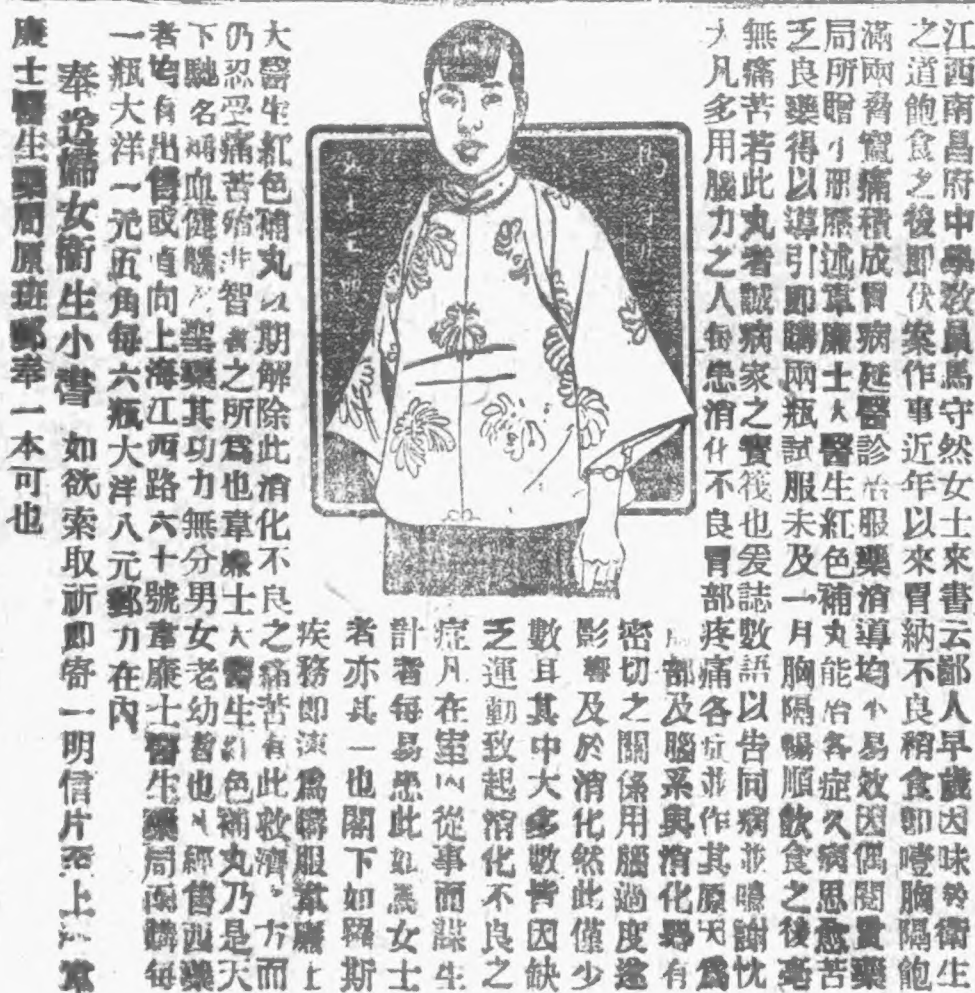 江西南昌府中學教員馬守然女士來書云鄙人早歲因昧於衛生
之道飽食之後即伏案作事近年以來胃納不良稍食即噎胸隔飽
滿兩脅竄痛積成胃病延醫診治服藥消導均不易效因偶閱貴藥
局所贈小冊歷述韋廉士大醫生紅色補丸能治各症久病思愈苦
乏良藥得以導引即購兩瓶試服未及一月胸隔暢順飲食之後毫
無痛苦若此丸者誠病家之寶筏也爰誌數語以告同病並鳴謝忱
大凡多用腦力之人每患消化不良胃部疼痛各症並作其原因為
部及腦系與消化器有
密切之關係用腦過度逾
影響及於消化然此僅少
數耳其中大多數皆因缺
乏運動致起消化不良之
症凡在室內從事而謀生
計者每易患此如馬女士
者亦其一也閣下如罹斯
疾務即演為購服韋廉士
大醫生紅色補丸以期解除此消化不良之痛苦有此救濟之方而
仍忍受痛苦殆非智者之所為也韋廉士大醫生紅色補丸乃是天
下馳名補血健腦之聖藥其功力無分男女老幼者也凡經售西藥
者均有出售或直向上海江西路六十號韋廉士醫生藥局函購每
一瓶大洋一元五角每六瓶大洋八元郵力在內
奉送婦女衛生小書 如欲索取祈即寄一明信片至上海韋
廉士醫生藥局原班郵奉一本可也